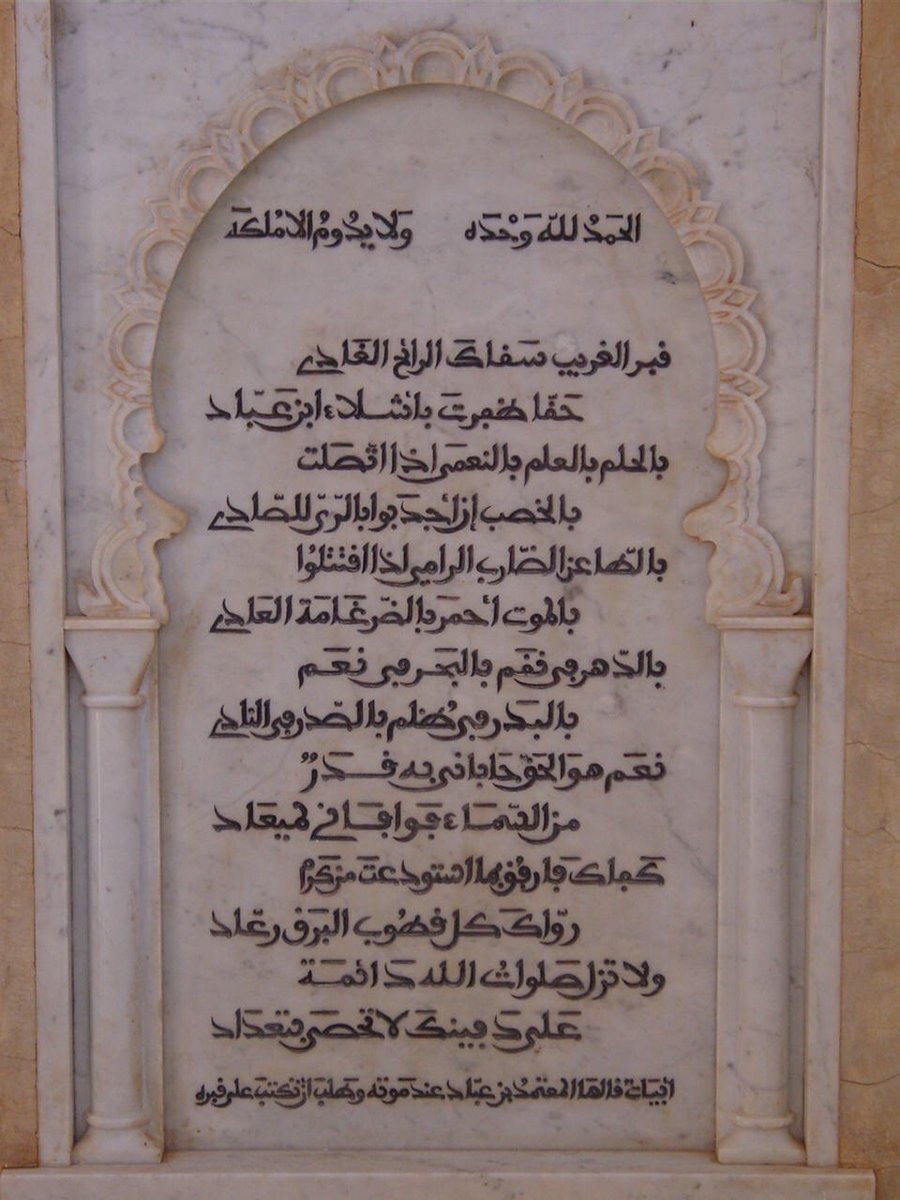 الحمدُ للّه وَحْدَه ولَا يدُومُ الا مُلكَه
قبر الغريب سَقاكَ الرائح الغَادي
حَقّا ظفرتَ بأشلاء ابن عَبّاد
بالحلم بالعلم بالنعمَى اذا اتّصَلت
بالخصب إن أجدَبوا بالرّي للصّادي
بالطّاعن الضّارب الرامي اذا اقتتلُوا
بالموت أحمرَ بالضّرغَامَة العَادي
بالدّهر في نقَم بالبَحر في نعَم
بالبَدر في ظُلم بالصّدر في النادي
نعَم هوَ الحَقّ حَاباني به قَدَرٌ
من السّمَاء فوافَاني لميعَاد
كفاك فارفُق بما استودعتَ من كرَم
روّاكَ كل قطُوب البَرق رعّاد
ولا تزل صَلواتُ الله دَائمَة
عَلى دَفينكَ لا تحصَى بتعدَاد
ابيَات قالها المعتمدُ بن عبّاد عند مَوته وطلبَ ان تكتبَ على قبره